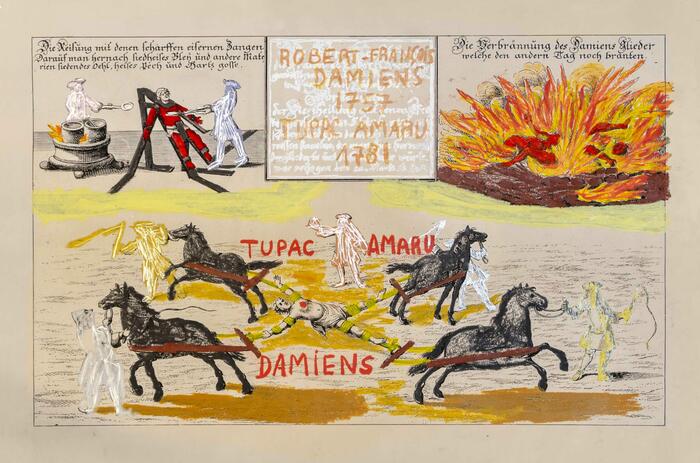 Die Reisung mit denen scharffen eisernen Zangen
Darauf man hernach siedheises Bley und andere Mate
rien siedendes Oehl, heises Pech und Hartz gosse.
ROBERT-FRANÇOIS
DAMIENS
1757
TUPAC AMARU
1781
Die Verbrännung des Damiens Glieder
welche den andern Tag noch branten
TUPAC AMARU
DAMIENS